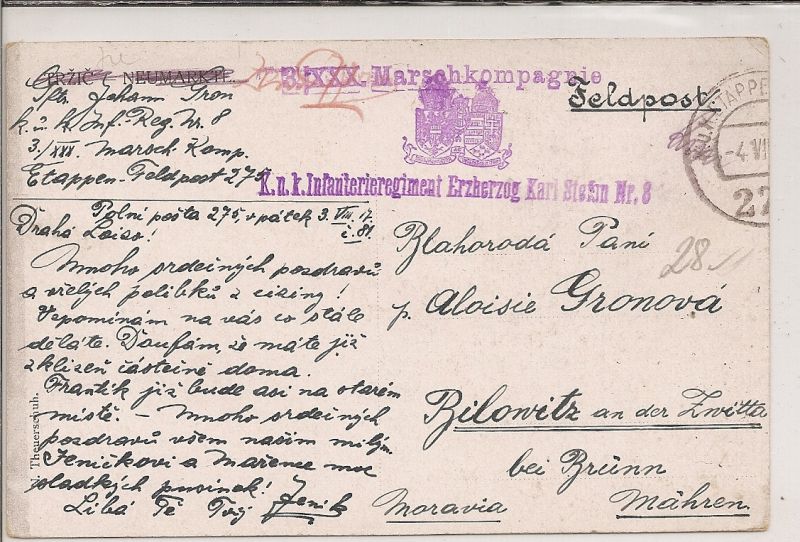 TRŽIČ — NEUMARKTL.
3./XXX. Marschkompagnie
Feldpost.
K.u.K. ETAPPEN
-4.VII
27
Johann Gron
k. u. k. Inf.-Reg. Nr. 8
3./XXX Marsch Komp.
Etappen-Feldpost 275
K.u.k. Infanterieregiment Erzherzog Karl Stefan Nr. 8
Polní pošta 275, v pátek 3. VIII. 17.
č. 81.
Drahá Loiso!
Mnoho srdečných pozdravů
a vřelých polibků z ciziny!
Vzpomínám na vás co stále
děláte. Doufám, že máte již
sklizeň částečně doma.
Frantík již bude asi na starém
místě. – Mnoho srdečných
pozdravů všem našim milým.
Jeníčkovi a Mařence moc
sladkých pusinek!
Líbá Tě Tvůj Jeník
Theuerschuh.
28
Blahorodá Paní
p. Aloisie Gronová
Bilowitz an der Zwitta
bei Brünn
Moravia Mähren.